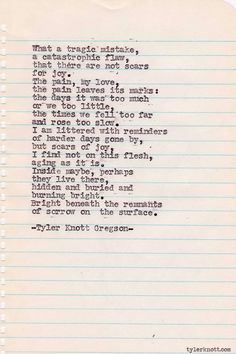 What a tragic mistake,
a catastrophic flaw,
that there are not scars
for joy.
The pain, my love,
the pain leaves its marks:
the days it was too much
or we too little,
the times we fell too far
and rose too slow.
I am littered with reminders
of harder days gone by,
but scars of joy,
I find not on this flesh,
aging as it is.
Inside maybe, perhaps
they live there,
hidden and buried and
burning bright.
Bright beneath the remnants
of sorrow on the surface.
-Tyler Knott Gregson-
tylerknott.com